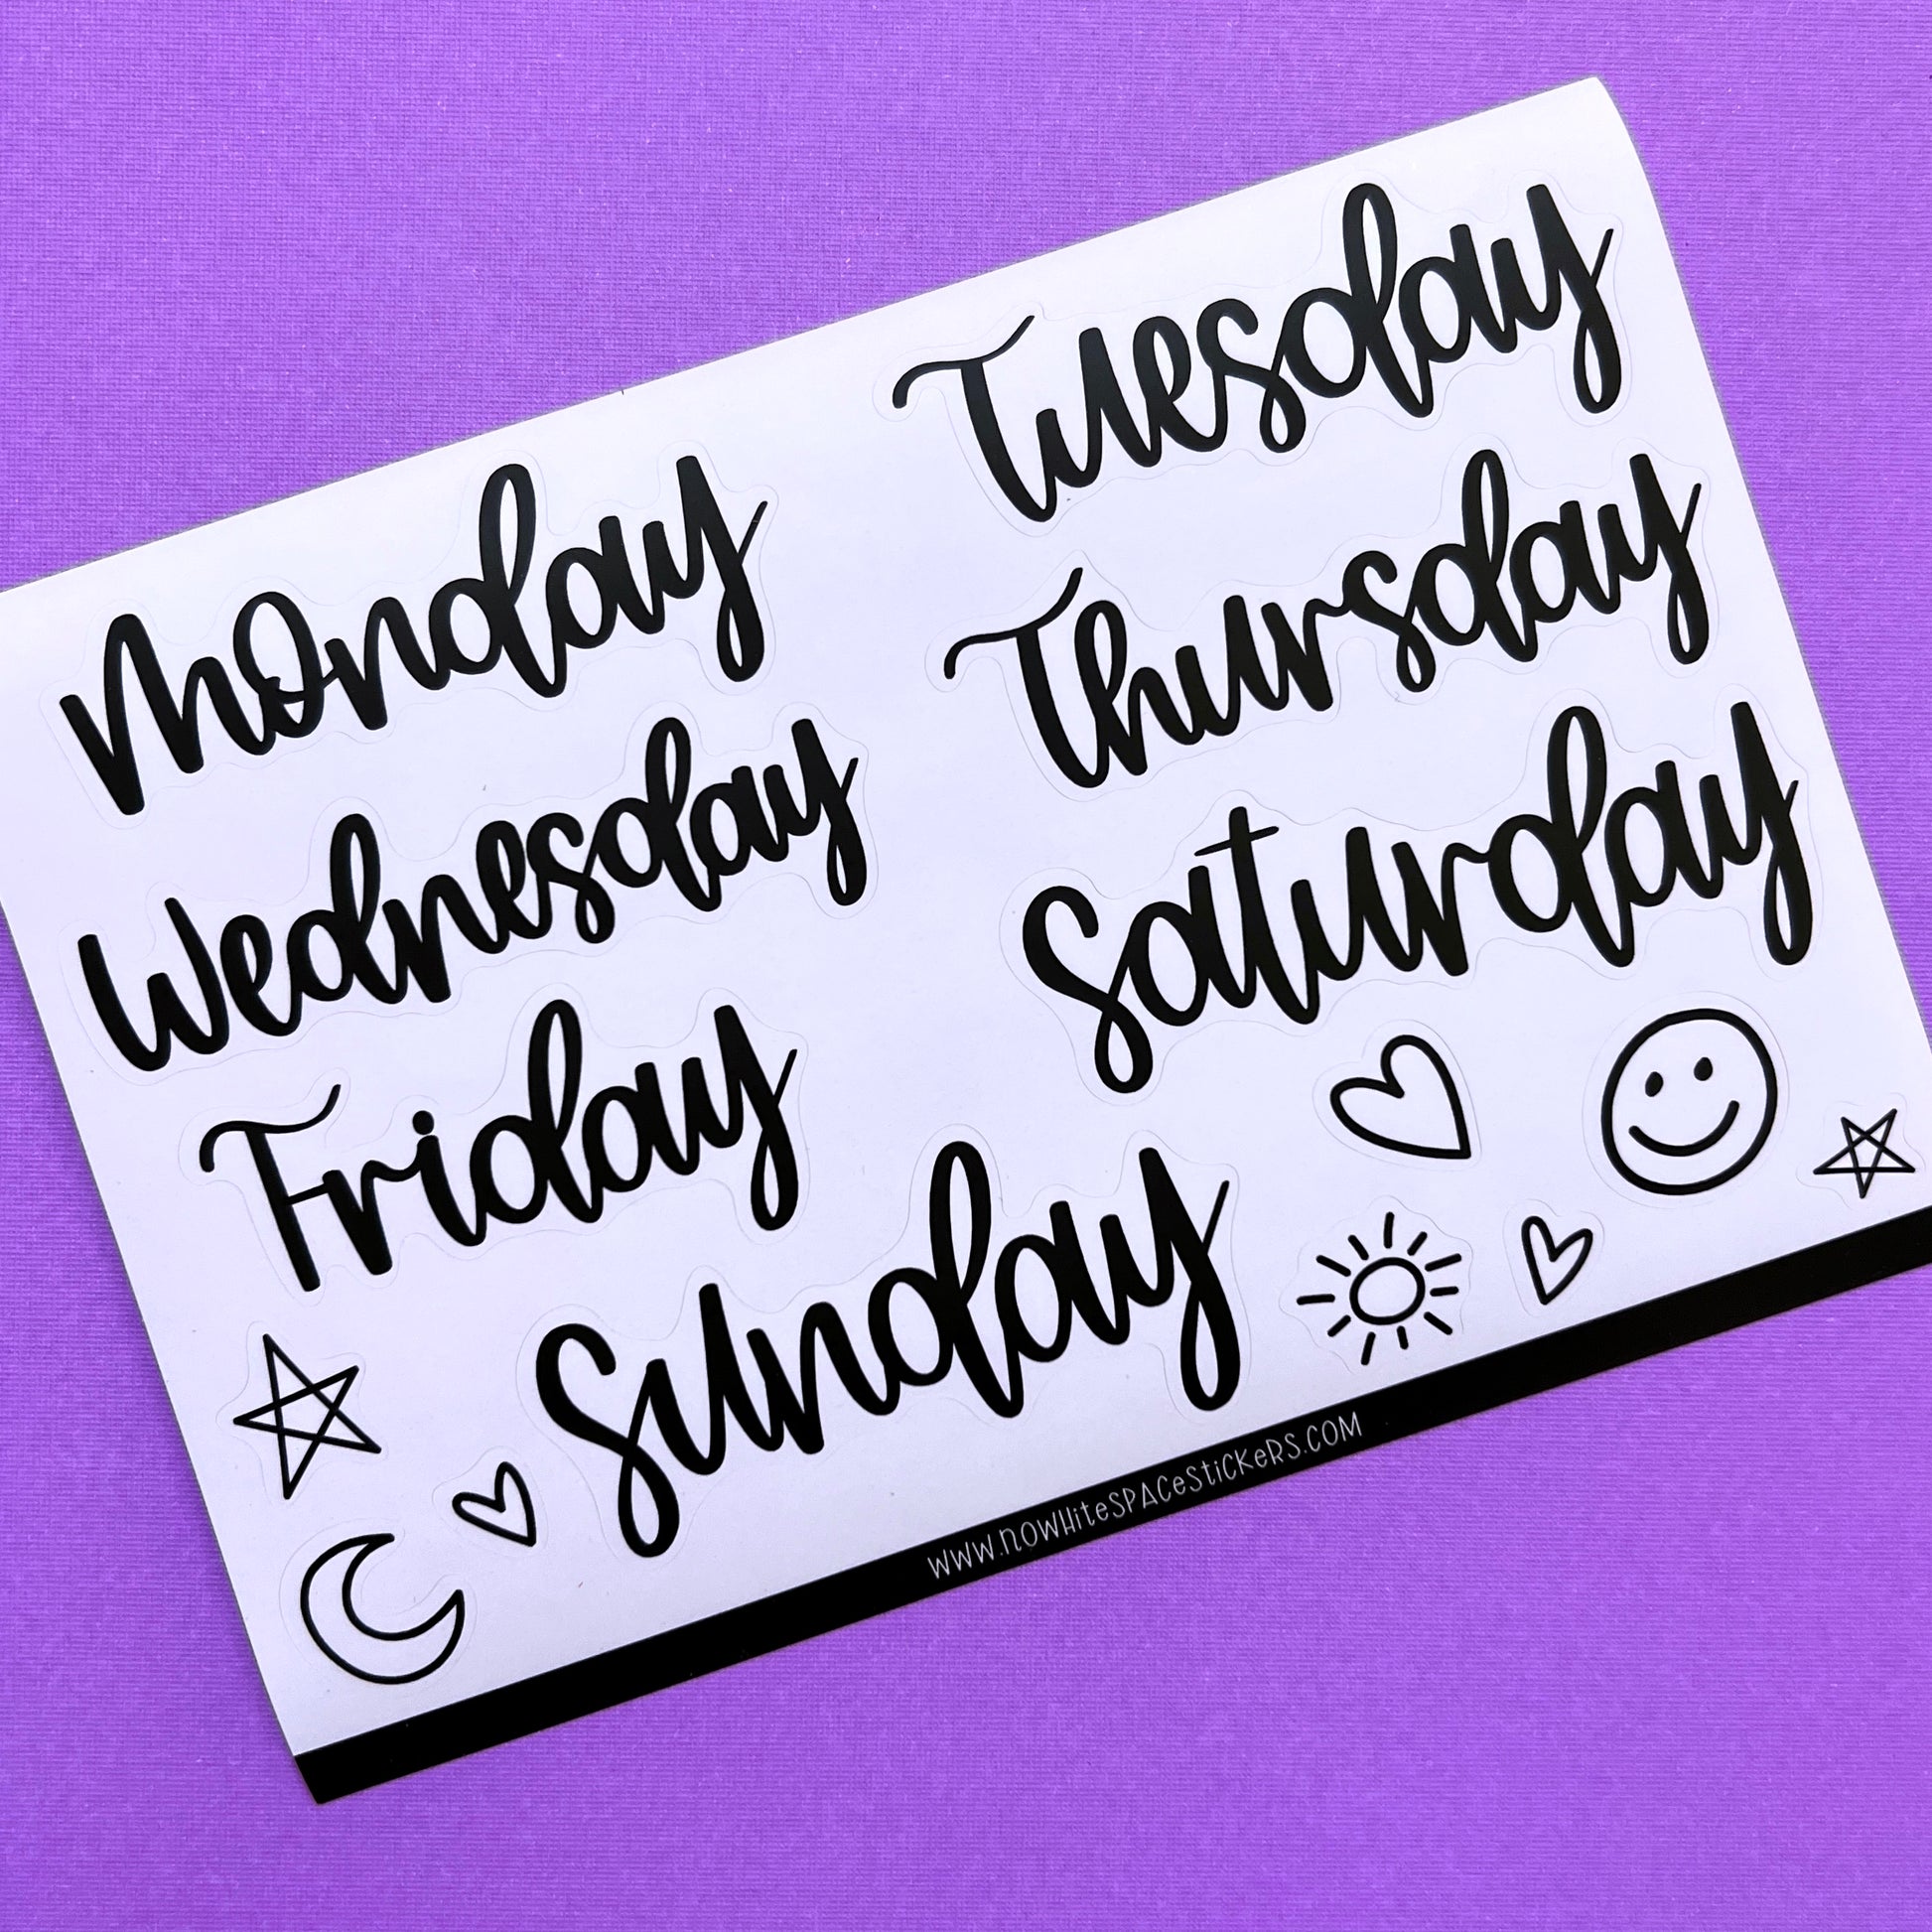 Monday
Tuesday
Wednesday
Thursday
Friday
Saturday
Sunday
WWW.NOWHiteSPACeStiCKeRS.COM